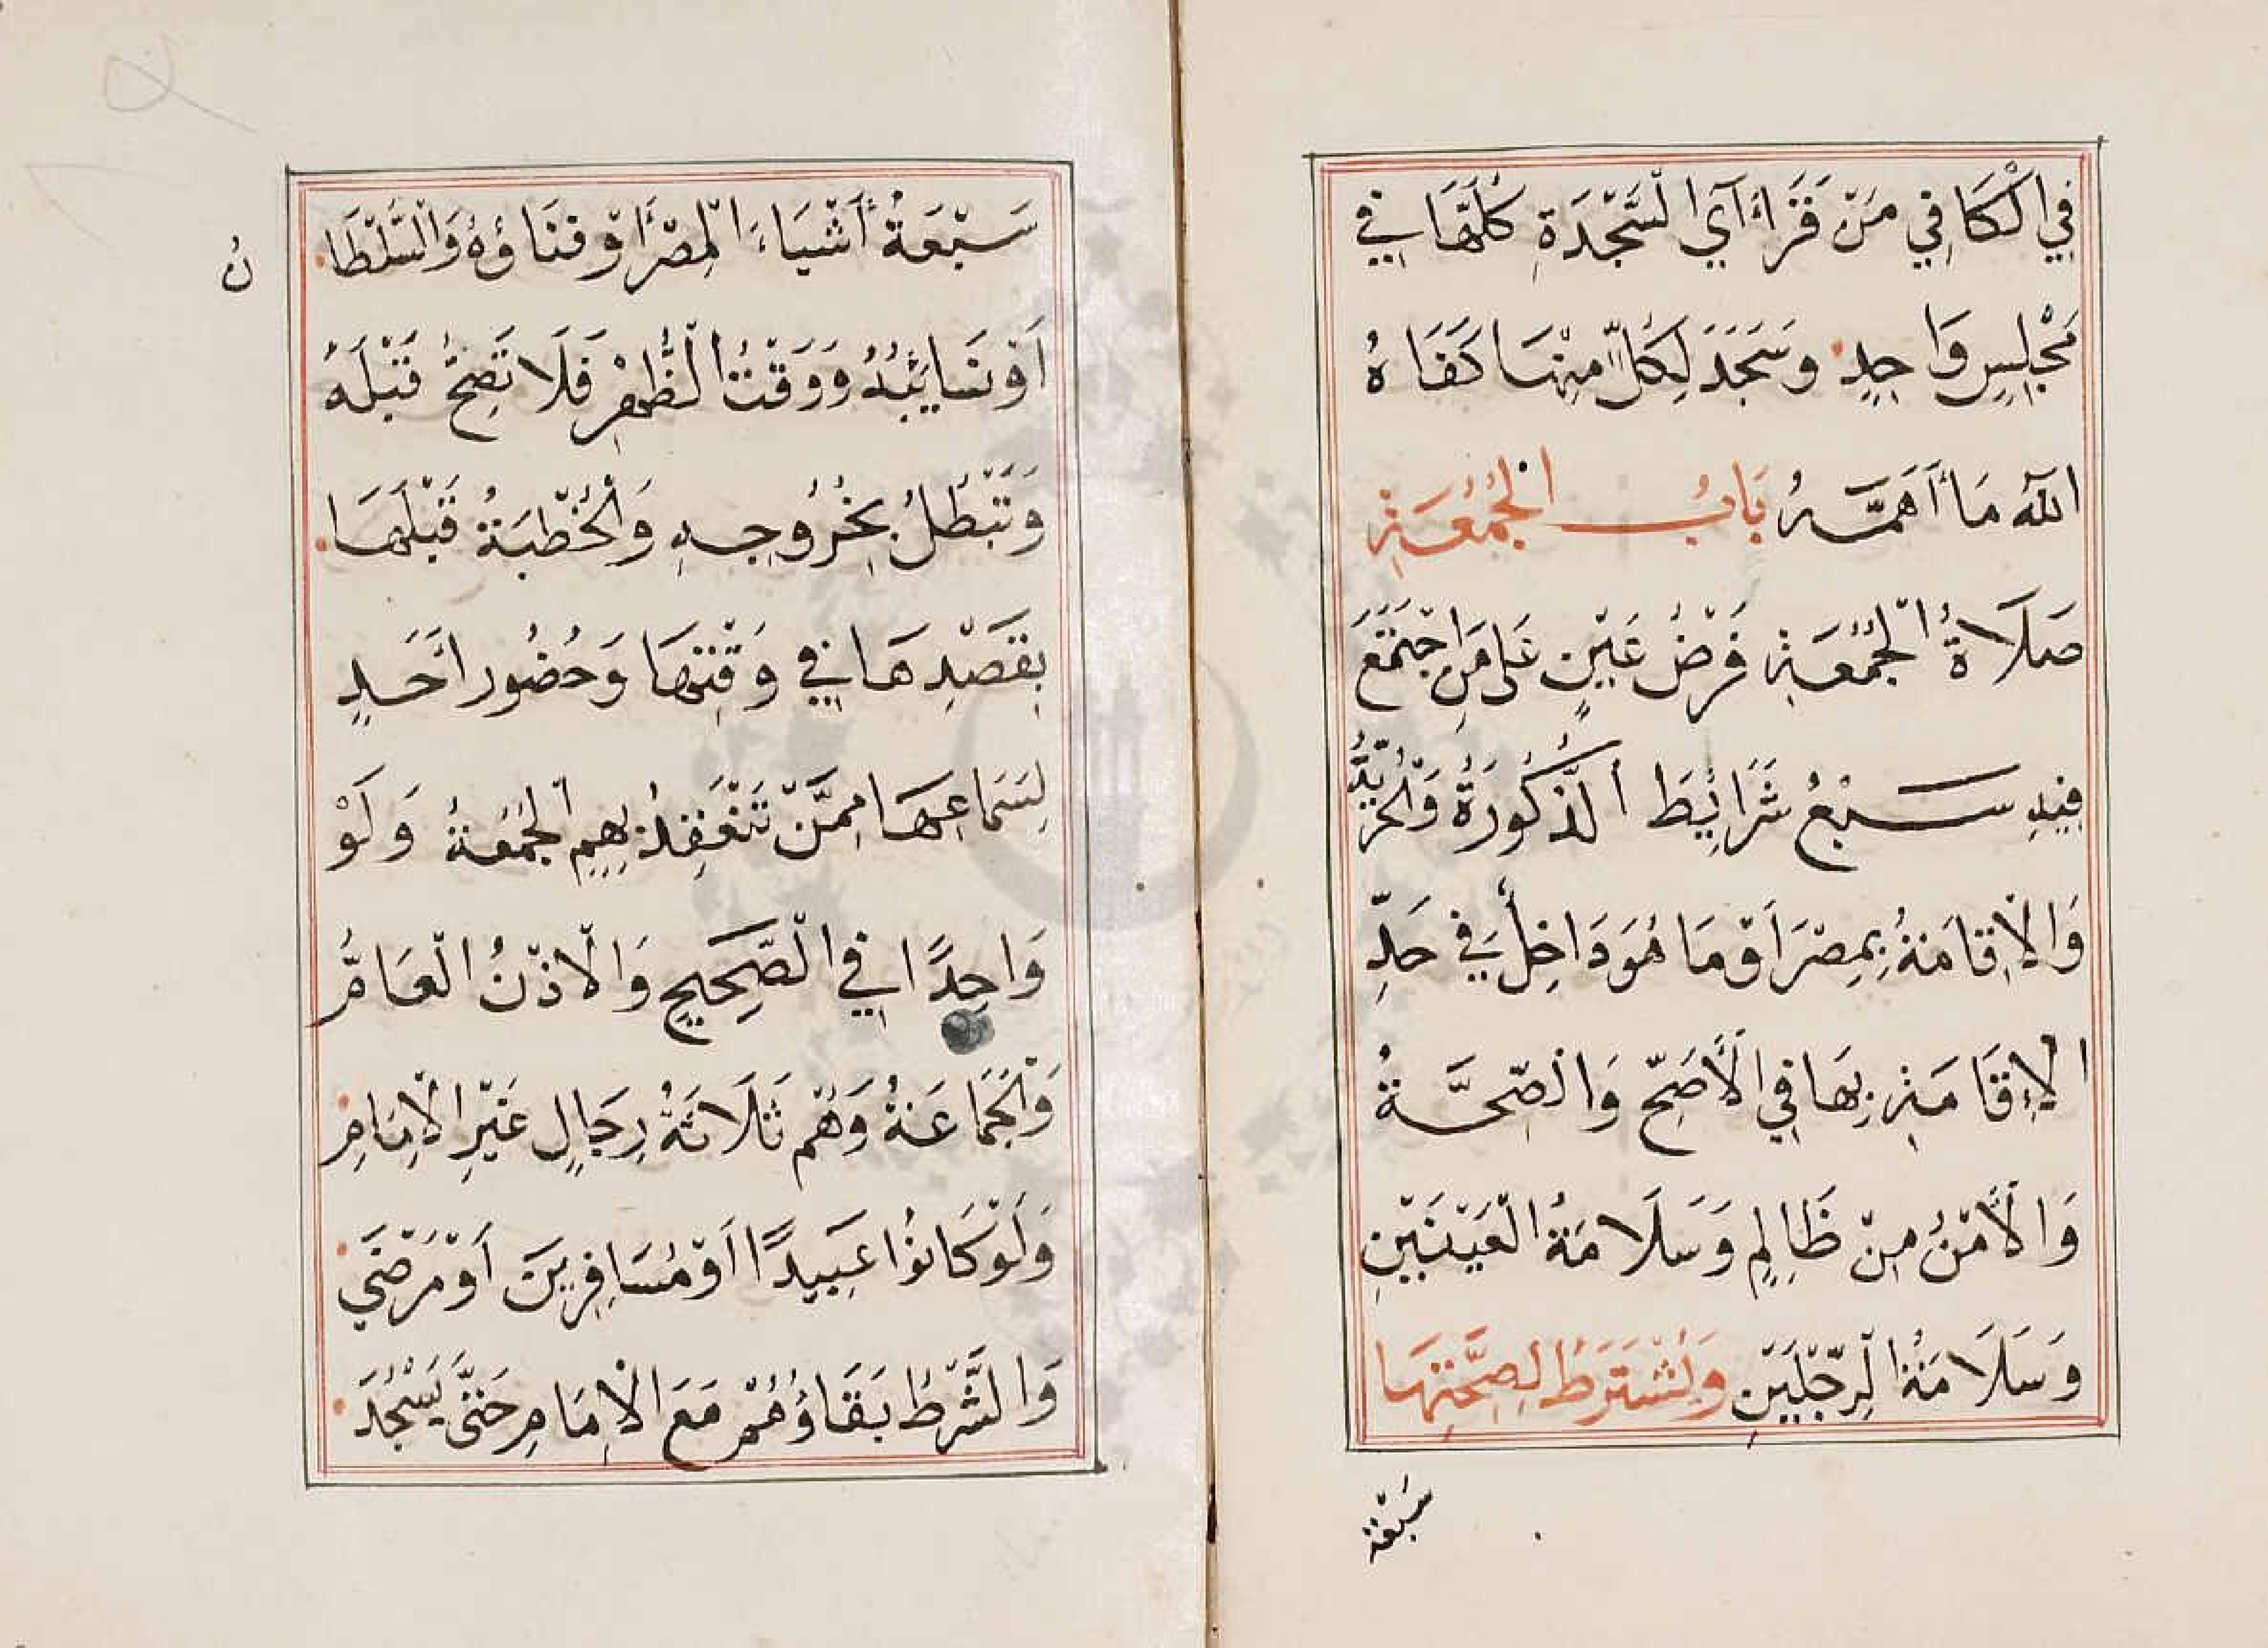 فِي الْكَافِي مَنْ قَرَأَ آيَ السَّجْدَةِ كُلَّهَا فِي
مَجْلِسٍ وَاحِدٍ وَسَجَدَ لِكُلٍّ مِنْهَا كَفَاهُ
اللّٰهُ مَا أَهَمَّهُ بَابُ الْجُمُعَةِ
صَلَاةُ الْجُمُعَةِ فَرْضُ عَيْنٍ عَلَى مَنِ اجْتَمَعَ
فِيهِ سَبْعُ شَرَائِطَ الذُّكُورَةُ وَالْحُرِّيَّةُ
وَالْإِقَامَةُ بِمِصْرَ أَوْ مَا هُوَ دَاخِلٌ فِي حَدِّ
الْإِقَامَةِ بِهَا فِي الْأَصَحِّ وَالصِّحَّةُ
وَالْأَمْنُ مِنْ ظَالِمٍ وَسَلَامَةُ الْعَيْنَيْنِ
وَسَلَامَةُ الرِّجْلَيْنِ وَيُشْتَرَطُ لِصِحَّتِهَا
سَبْعَة
سَبْعَةُ أَشْيَاءَ الْمِصْرُ أَوْ فِنَاؤُهُ وَالسُّلْطَا
نُ
أَوْ نَائِبُهُ وَوَقْتُ الظُّهْرِ فَلَا تَصِحُّ قَبْلَهُ
وَتَبْطُلُ بِخُرُوجِهِ وَالْخُطْبَةُ قَبْلَهَا
بِقَصْدِهَا فِي وَقْتِهَا وَحُضُورُ أَحَدٍ
لِسَمَاعِهَا مِمَّنْ تَنْعَقِدُ بِهِمِ الْجُمُعَةُ وَلَوْ
وَاحِدًا فِي الصَّحِيحِ وَالْاِذْنُ الْعَامُّ
وَالْجَمَاعَةُ وَهُمْ ثَلَاثَةُ رِجَالٍ غَيْرِ الْاِمَامِ
وَلَوْ كَانُوا عَبِيدًا أَوْ مُسَافِرِينَ أَوْ مَرْضَى
وَالشَّرْطُ بَقَاؤُهُمْ مَعَ الْاِمَامِ حَتَّى يَسْجُدَ